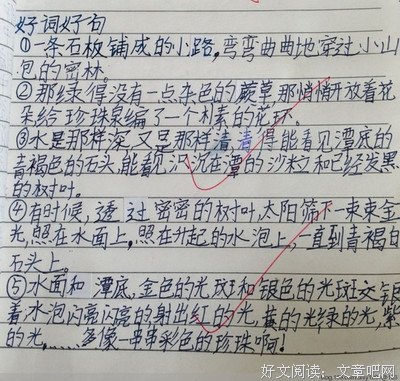 好词好句
①一条石板铺成的小路,弯弯曲曲地穿过小山
包的密林。
②那绿得没有一点杂色的蕨草那悄悄开放着花
朵给珍珠泉编了一个朴素的花环。
③水是那样深,又是那样清,清得能看见潭底的
青褐色的石头,能看见沉在潭的沙粒和已经发黑
的树叶。
④有时候,透过密密的树叶,太阳筛下一束束金
光,照在水面上,照在升起的水泡上,一直到青褐白
石头上。
⑤水面和潭底,金色的光斑和银色的光斑交银
着;水泡闪亮闪亮的射出红的光,黄的光绿的光,紫
的光,……多像一串串彩色的珍珠啊!
好文阅读:文章吧网